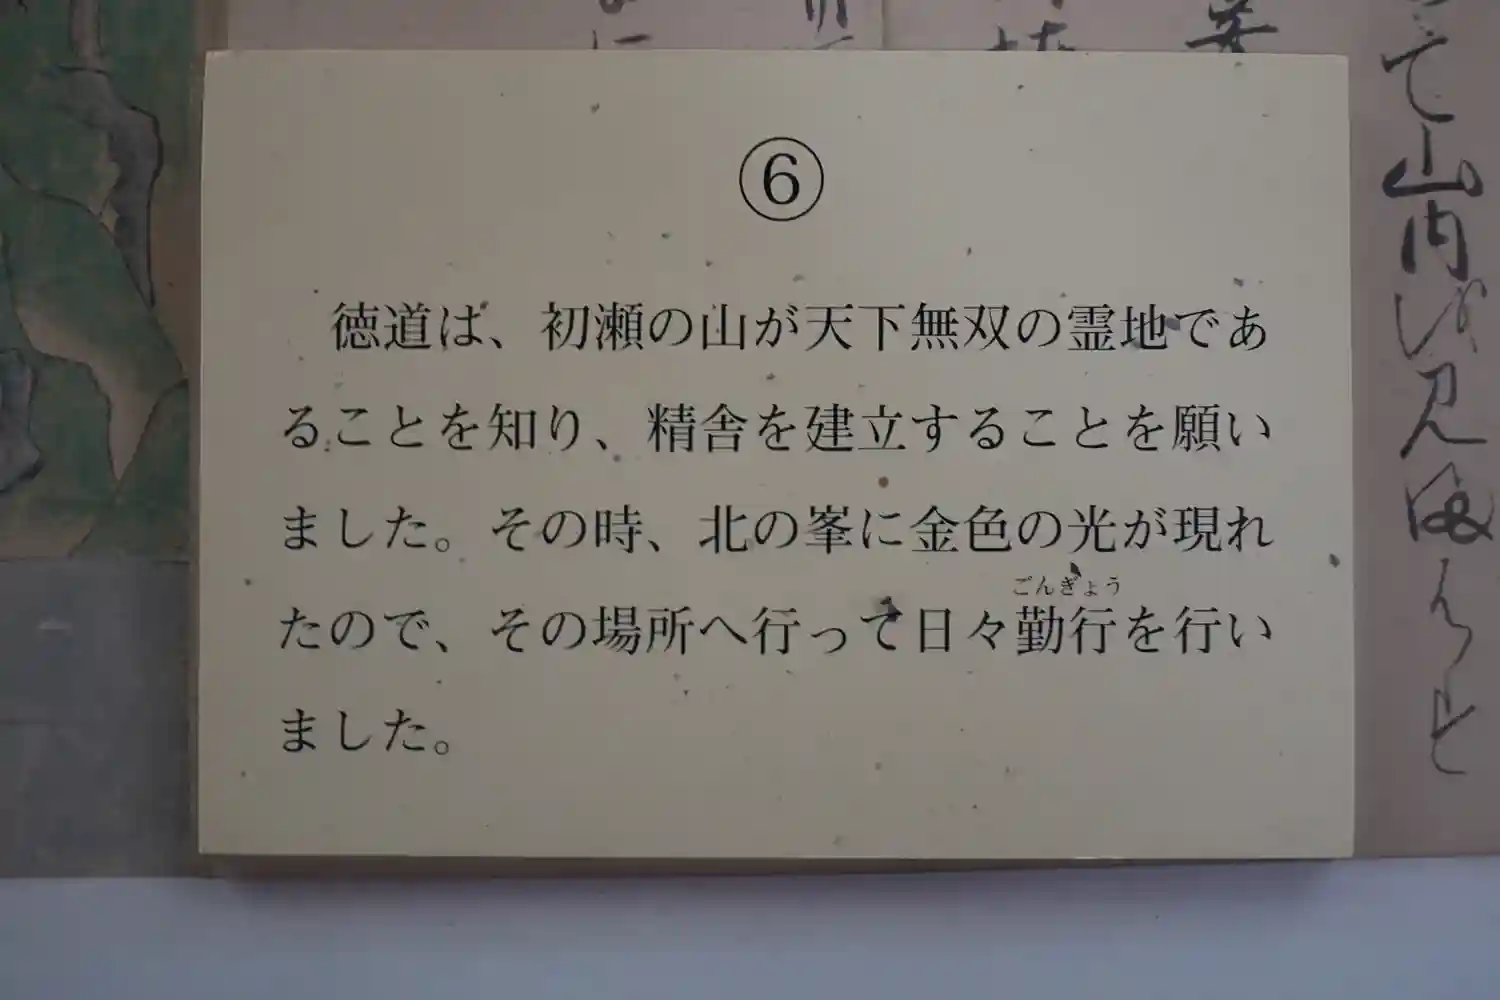 ⑥
徳道は、初瀬の山が天下無双の霊地であ
ることを知り、精舎を建立することを願い
ました。その時、北の峯に金色の光が現れ
ごんぎょう
たので、その場所へ行って日々勤行を行い
ました。